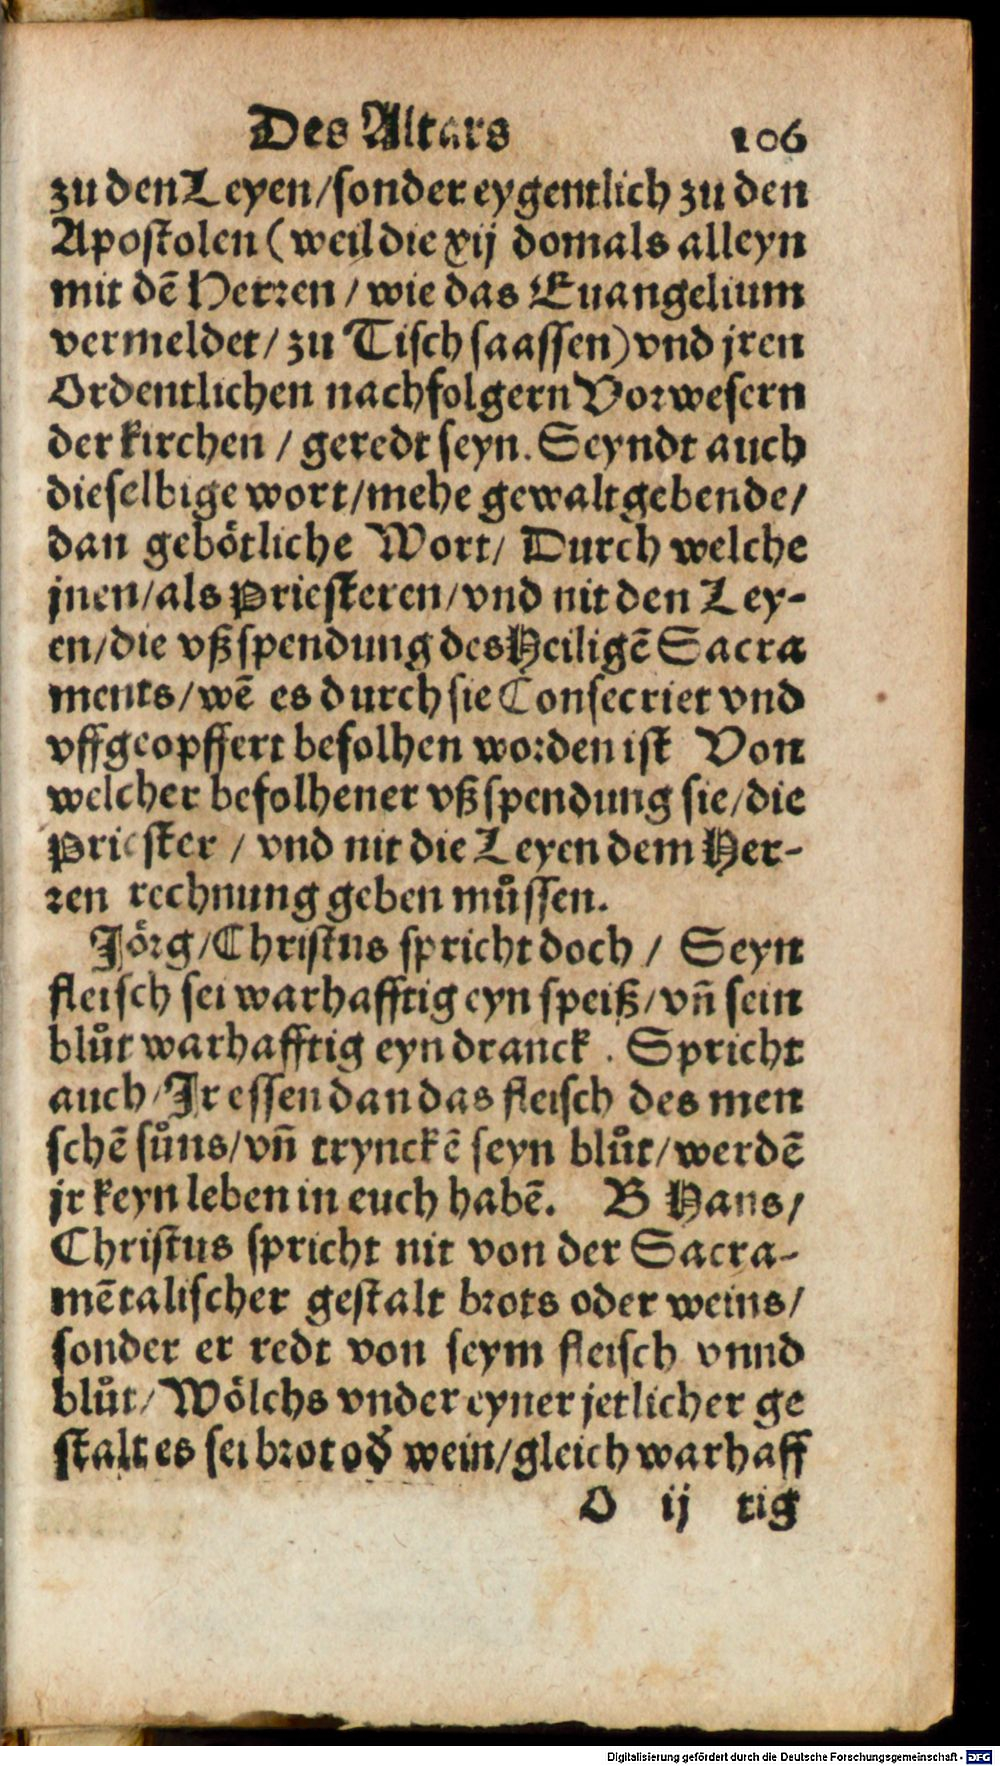 Des Altars 106
zu den Leyen/sonder eygentlich zu den
Apostolen (weil die xij domals alleyn
mit dē Herꝛen / wie das Euangelium
vermeldet/ zu Tisch saassen) vnd jren
Ordentlichen nachfolgern Voꝛwesern
der kirchen / geredt seyn. Seyndt auch
dieselbige wort/mehe gewaltgebende/
dan gebötliche Wort/ Durch welche
jnen/als Priesteren/vnd nit den Ley-
en/die vßspendung des Heiligē Sacra
ments/wē es durch sie Consecriet vnd
vffgeopffert befolhen woꝛden ist Von
welcher befolhener vßspendung sie/die
Priester / vnd nit die Leyen dem Her-
ꝛen rechnung geben můssen.
Jöꝛg/Christus spricht doch / Seyn
fleisch sei warhafftig eyn speiß/vn̄ sein
blůt warhafftig eyn dranck . Spricht
auch/Jr essen dan das fleisch des men
schē sůns/vn̄ trynckē seyn blůt/werdē
jr keyn leben in euch habē. B Hans/
Christus spricht nit von der Sacra-
mētalischer gestalt bꝛots oder weins/
sonder er redt von seym fleisch vnnd
blůt/Wölchs vnder eyner jetlicher ge
stalt es sei bꝛot oď wein/gleich warhaff
O ij tig
Digitalisierung gefördert durch die Deutsche Forschungsgemeinschaft - DFG